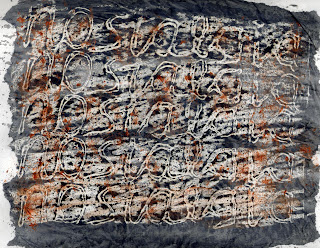 nostalgia
nostalgia
nostalgia
nostalgia
nostalgia